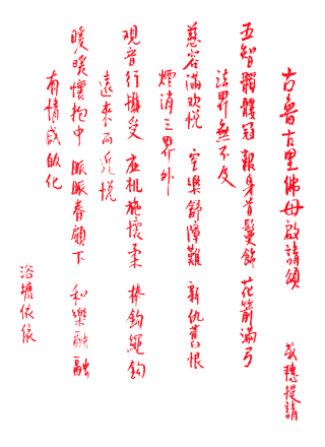 古魯古里佛母啟請頌 提請
五智髑髏冠 報身首髮飾 花箭滿弓
法界無不及
慈容滿欢悅 空樂舒障難 新仇舊恨
煙消三界外
观音行攝受 应机施懷柔 棒鉤繩鉤
遠來而近悅
暖暖懷抱中 脈脈眷顧下 和樂融融
有情咸皈化